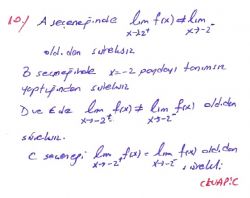 10.) A seçeneğinde lim f(x) ≠ lim
x→2⁺ x→-2⁻
oldudan süreksiz
B seçeneğinde x=-2 paydayı tanımsız
yaptığından süreksiz
D ve E de lim f(x) ≠ lim f(x) oldudan
x→-2⁺ x→-2⁻
süreksiz.
C seçeneği lim f(x) = lim f(x) oldudan
x→-2⁺ x→-2⁻ sürekli
CEVAP:C